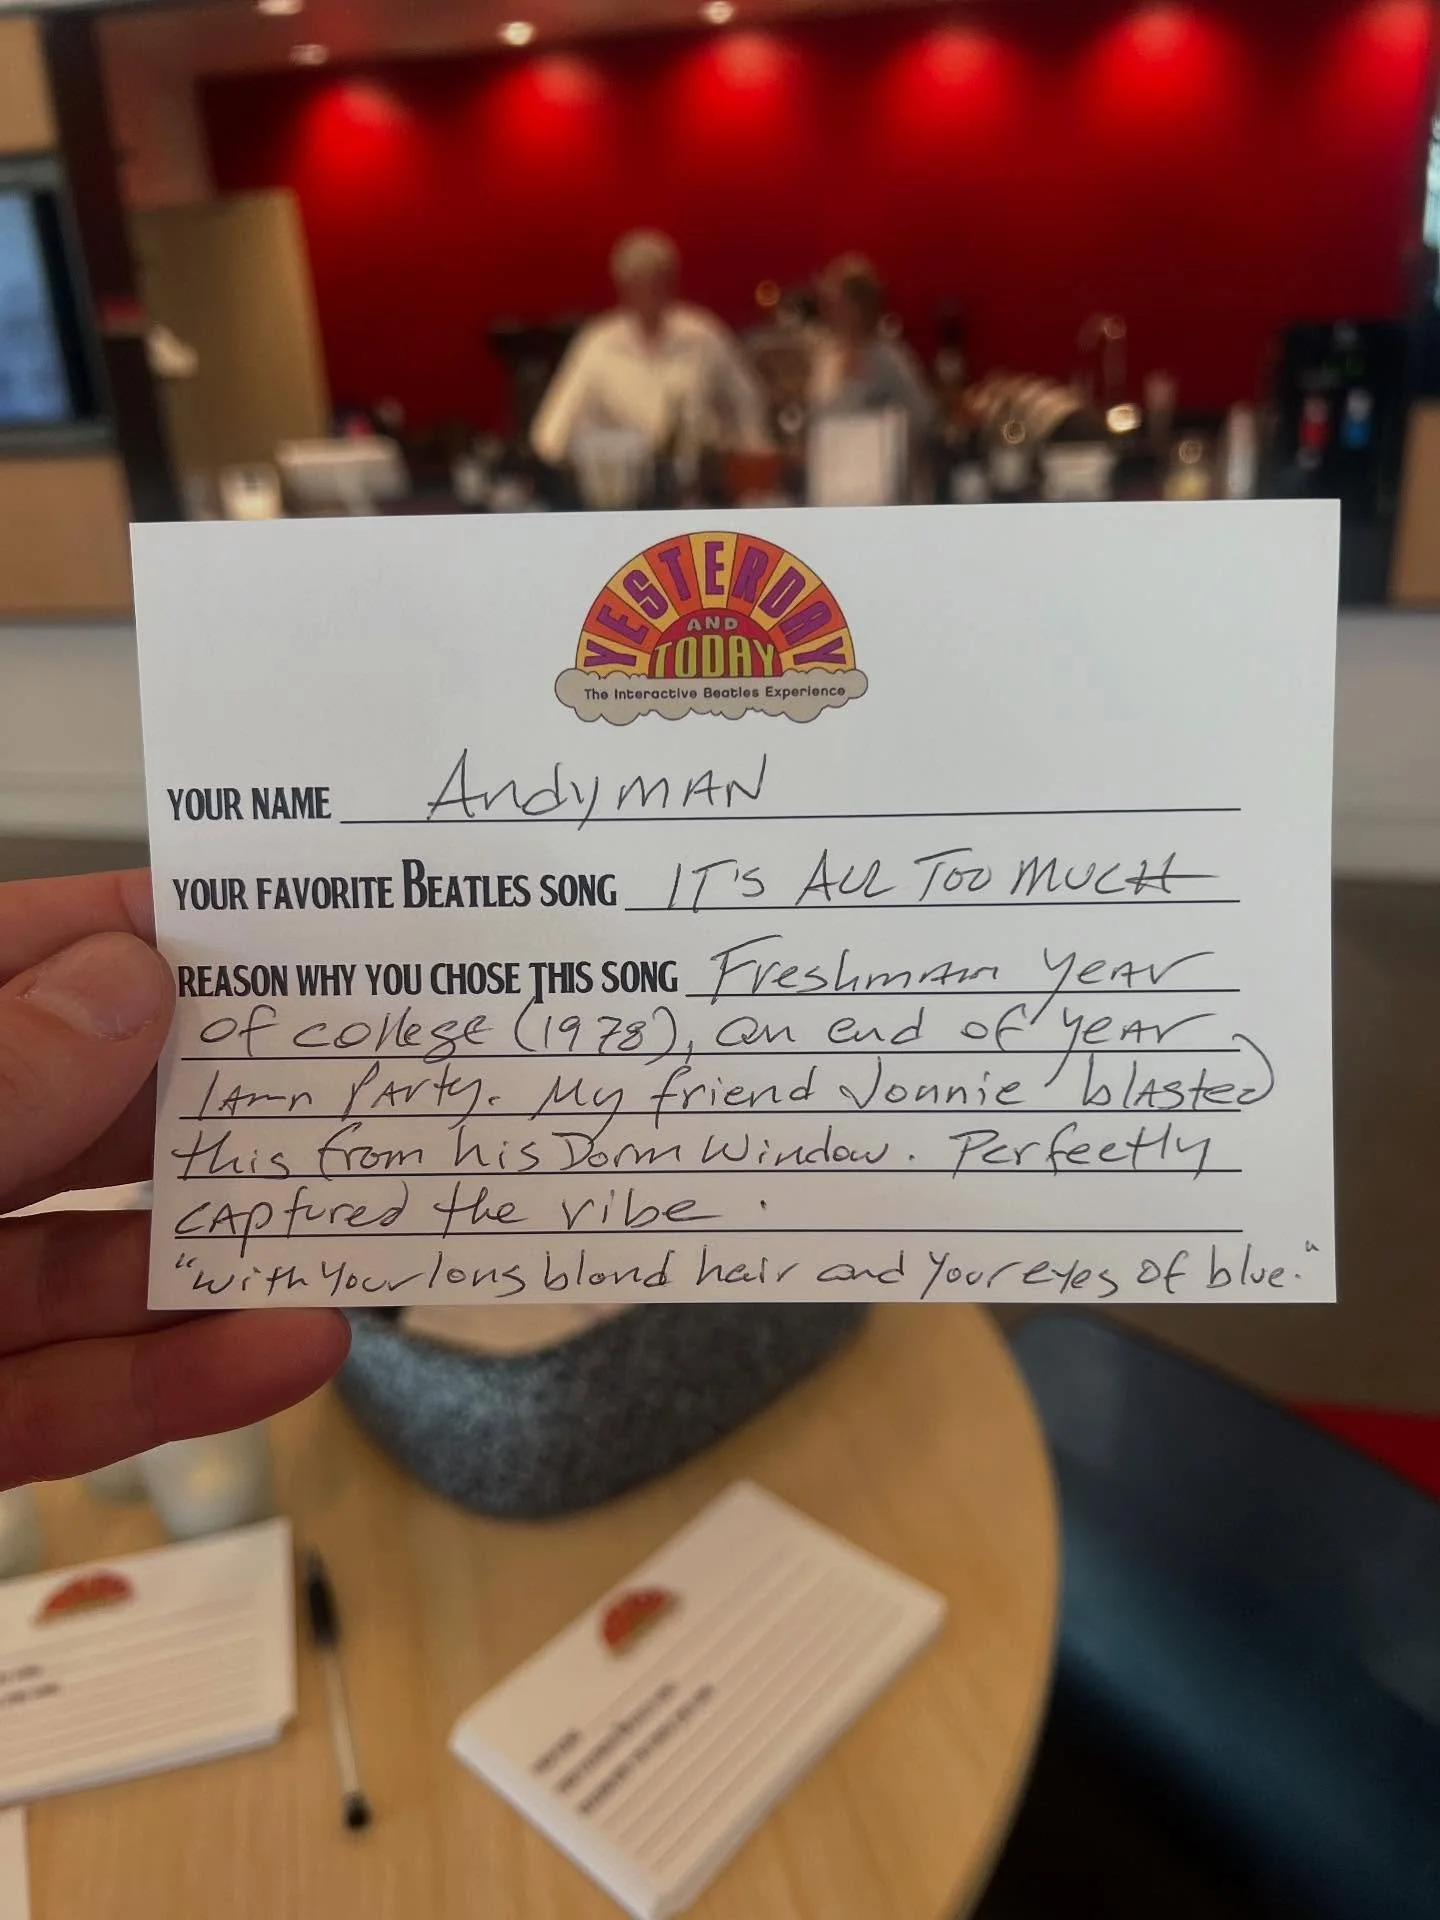 YESTERDAY
AND
TODAY
The Interactive Beatles Experience
YOUR NAME AndyMAN
YOUR FAVORITE BEATLES SONG IT'S ALL TOO MUCH
REASON WHY YOU CHOSE THIS SONG Freshman year
of college (1978), an end of year
lawn party. My friend Jonnie blasted
this from his Dorm Window. Perfectly
captured the vibe.
"with your long blond hair and your eyes of blue."